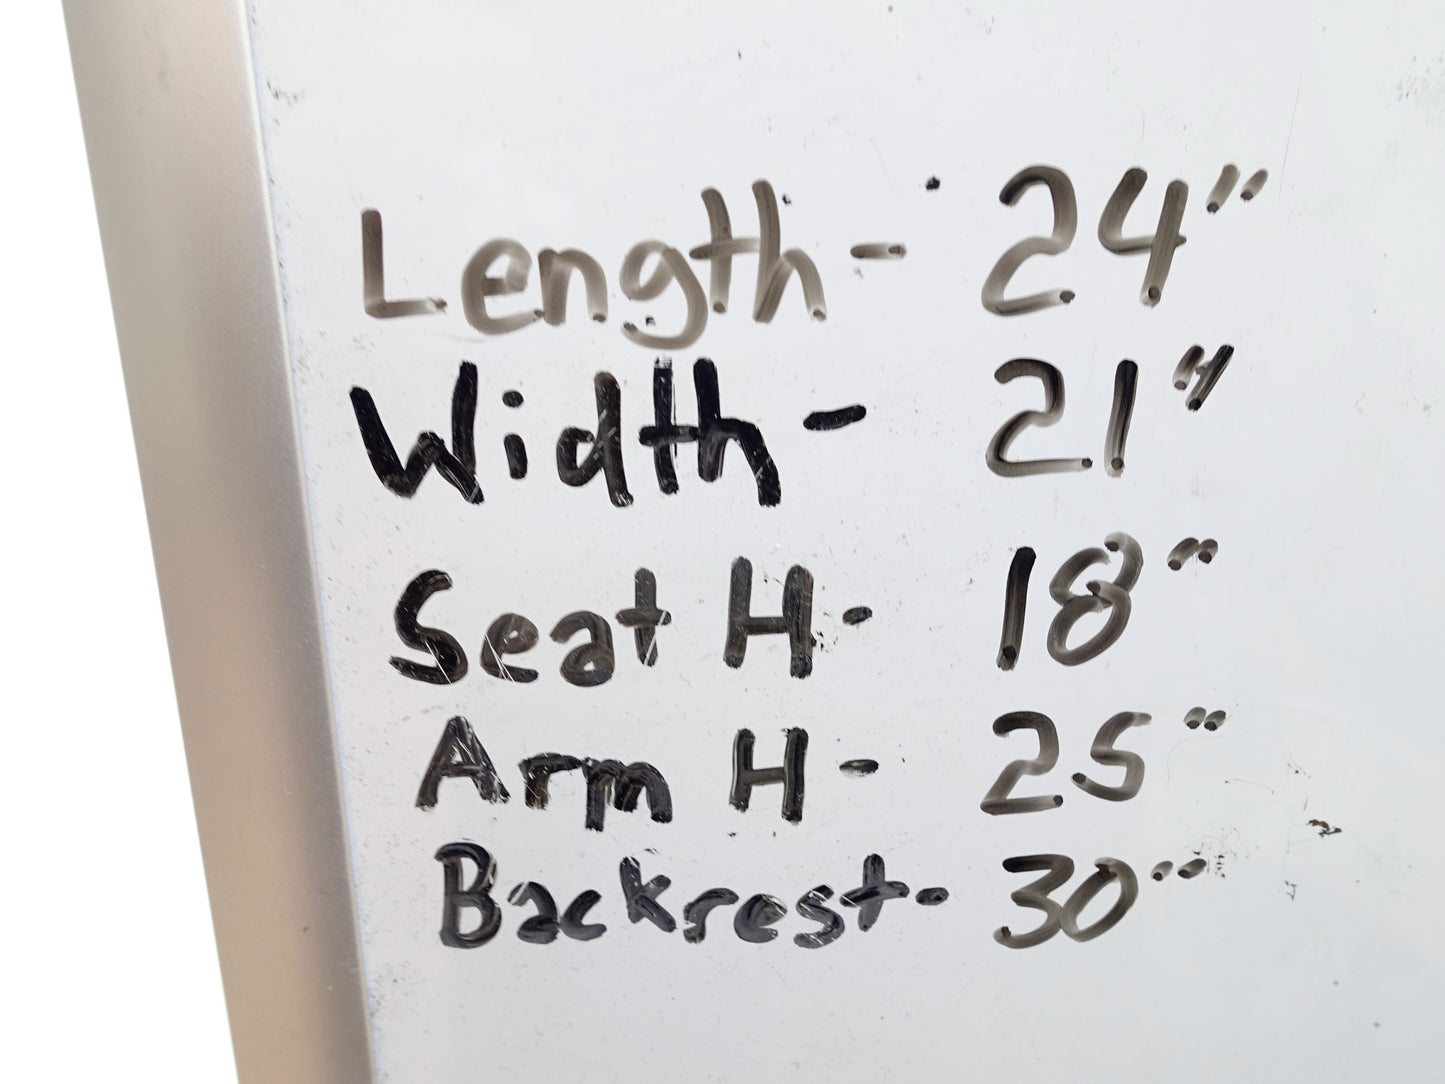 Length - 24"
Width - 21"
Seat H - 18"
Arm H - 25"
Backrest - 30"